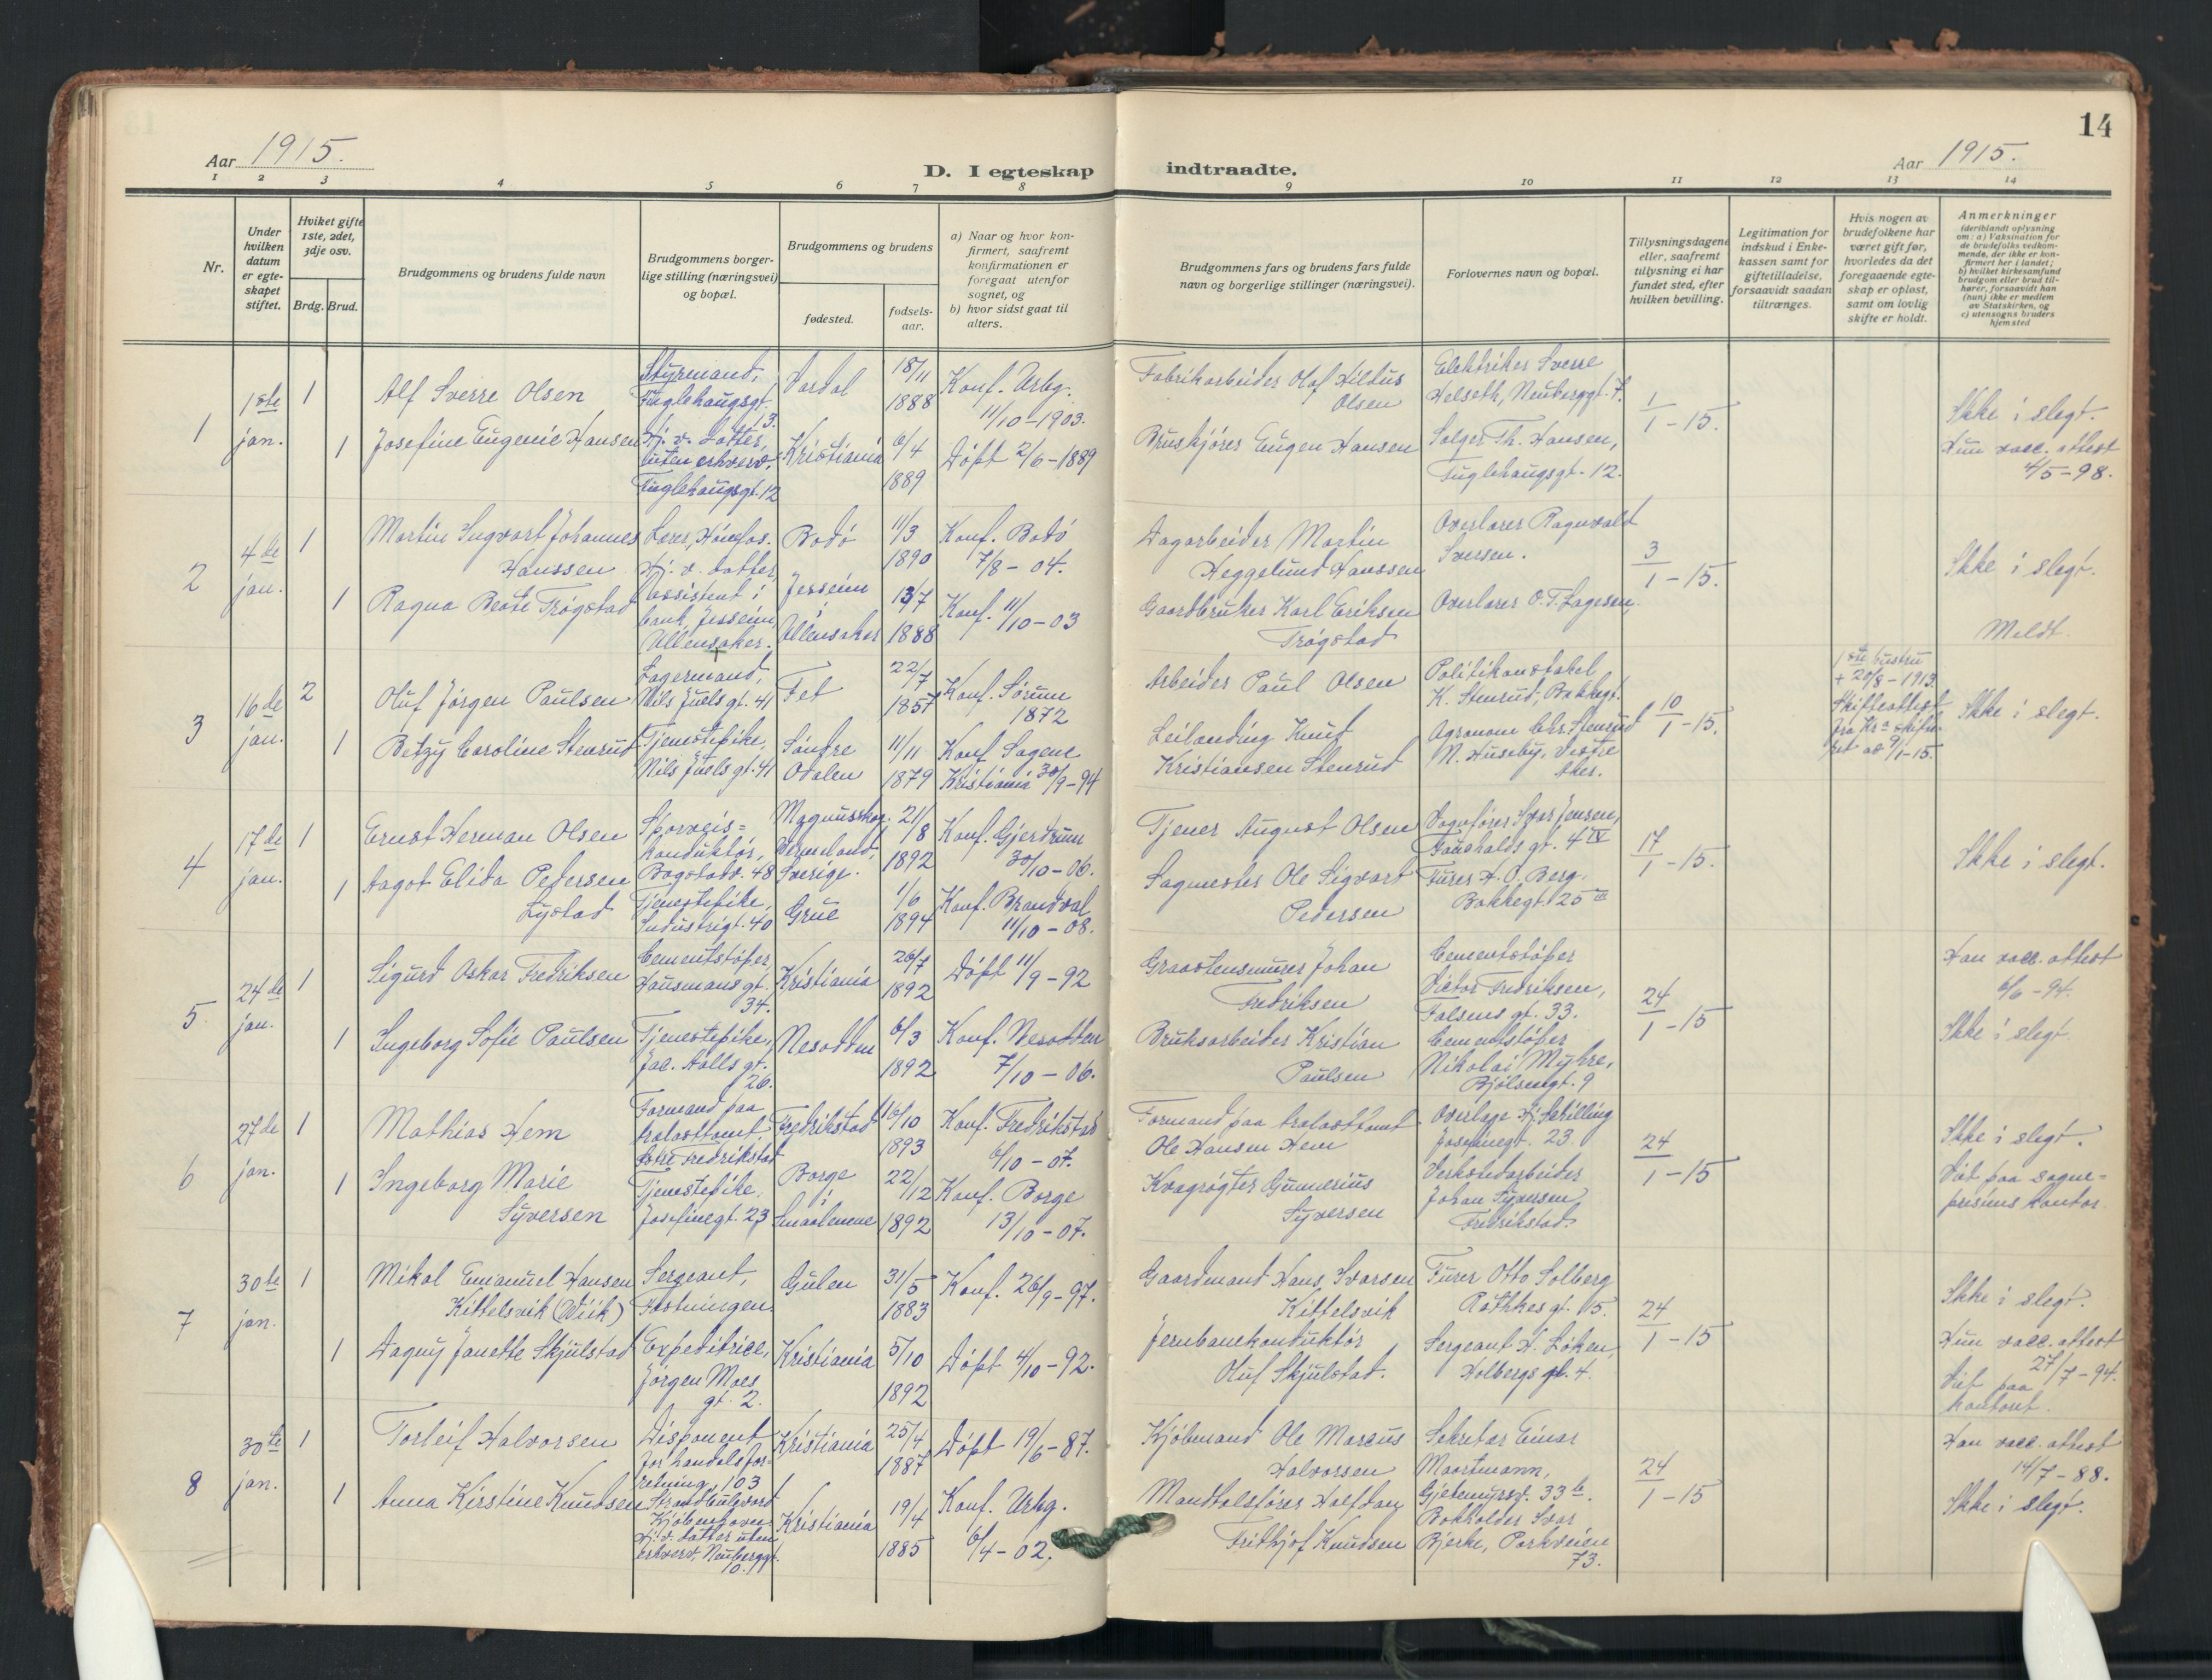 14
Aar 1915.
D. I egteskap indtraadte.
Aar 1915.
1 2 3 4 5 6 7 8 9 10 11 12 13 14
Nr.
Under hvilken datum er egte-skapet stiftet.
Hviket gifte 1ste, 2det, 3dje osv.
Brdg. Brud.
Brudgommens og brudens fulde navn
Brudgommens borger-lige stilling (næringsvei) og bopæl.
Brudgommens og brudens
fødested.
fødsels-aar.
a) Naar og hvor kon-firmert, saafremt konfirmationen er foregaat utenfor sognet, og
b) hvor sidst gaat til alters.
Brudgommens fars og brudens fars fulde navn og borgerlige stillinger (næringsvei).
Forlovernes navn og bopæl.
Tillysningsdagene eller, saafremt tillysning ei har fundet sted, efter hvilken bevilling.
Legitimation for indskud i Enke-kassen samt for giftetilladelse, forsaavidt saadan tiltrænges.
Hvis nogen av brudefolkene har været gift før, hvorledes da det foregaaende egte-skap er opløst, samt om lovlig skifte er holdt.
Anmerkninger (deriblandt oplysning om: a) Vaksination for de brudefolks vedkom-mende, der ikke er kon-firmert her i landet; b) hvilket kirkesamfund brudgom eller brud til-hører, forsaavidt han (hun) ikke er medlem av Statskirken, og c) utensogns bruders hjemsted
1
1ste jan.
1
Alf Sverre Olsen
Styrmand, Fuglehaugsgt. 13.
Vardal
18/11 1888
Konf. Urbg. 11/10-1903.
Fabrikarbeider Olaf Hildus Olsen
Elektriker Sverre Helseth, Neuberggt. 7.
1/1-15.
Ikke i slegt.
1
Josefine Eugenie Hansen
Hj. v. datter, uten erhverv, Fuglehaugsgt. 12
Kristiania
6/4 1889
Döpt 2/6-1889
Bruskjører Eugen Hansen
Selger Th. Hansen, Fuglehaugsgt. 12.
Hun vacc. attest 4/5-98.
2
4de jan.
1
Martin Ingvart Johannes Hanssen
Lerer, Hönefos.
Bodö
11/3 1890
Konf. Bodö 7/8-04.
Dagarbeider Martin Heggelund Hanssen
Overlærer Ragnvald Iversen.
3/1-15.
Ikke i slegt.
1
Ragna Beate Trögstad
Hj. v. datter, Assistent i bank, Jessheim, Ullensaker.
Jesseim i Ullensaker
13/7 1888
Konf. 11/10-03
Gaardbruker Karl Eriksen Trögstad
Overlærer O. T. Lagesen.
Meldt.
3
16de jan.
2
Oluf Jörgen Paulsen
Lagermand, Nils Juels gt. 41
Fet
22/7 1857
Konf. Sörum 1872
Arbeider Paul Olsen
Politikonstabel K. Stenrud, Bakkegt.
10/1-15.
1ste hustru + 20/8-1913. Skifteattest fra Kr.a skifte-ret av 9/1-15.
Ikke i slegt.
1
Betzy Caroline Stenrud
Tjenestepike, Nils Juels gt. 41
Söndre Odalen
11/11 1879
Konf. Sagene Kristiania 30/9-94
Leilending Knut Kristiansen Stenrud
Agronom Chr. Stenrud N. Huseby, Vestre Aker.
4
17de jan.
1
Ernst Herman Olsen
Sporveis=konduktör, Bogstadv. 48
Magnusskog, Vermeland, Sverige.
21/8 1892
Konf. Gjerdrum 30/10-06.
Tjener August Olsen
Vognfører Ivar Jensen, Fauchalds gt. 4 IV
17/1-15.
Ikke i slegt.
1
Aagot Elida Pedersen Lystad
Tjenestepike, Industrigt. 40
Grue
1/6 1894
Konf. Brandval 11/10-08.
Sagmester Ole Sigvart Pedersen
Furer H. O. Berg. Bakkegt. 25 III
5
24de jan.
1
Sigurd Oskar Fredriksen
Cementstöper, Hausmansgt. 34.
Kristiania
26/7 1892
Döpt 11/9-92
Graastensmurer Johan Fredriksen
Cementstöper Victor Fredriksen, Falsens gt. 33.
24/1-15
Han vacc. attest 6/6-94.
Ikke i slegt
1
Ingeborg Sofie Paulsen
Tjenestepike, Jac. Aalls gt. 26.
Nesodden
6/3 1892
Konf. Nesodden 7/10-06.
Bruksarbeider Kristian Paulsen
Cementstöper Nikolai Myhre, Bjölsengt. 9
6
27de jan.
1
Mathias Hem
Formand paa trælasttomt, Fredrikstad
Fredrikstad
16/10 1893
Konf. Fredrikstad 6/10-07.
Formand paa trælasttomt Ole Hansen Hem
Overlæge Hj. Schilling Josefinegt. 23
24/1-15
Ikke i slegt.
1
Ingeborg Marie Syversen
Tjenestepike, Josefinegt. 23
Borge i Smaalenene
22/12 1892
Konf. Borge 13/10-07.
Kvægrögter Gunnerius Syversen
Verkstedarbeider Johan Syversen, Fredrikstad.
Viet paa sogne=prestens kontor.
7
30te jan.
1
Mikal Emanuel Hansen Kittelsvik (Wiik)
Sergeant, Festningen.
Gulen
31/5 1883
Konf. 26/9-97.
Gaardmand Hans Ivarsen Kittelsvik
Furer Otto Solberg Rathkes gt. 15.
24/1-15
Ikke i slegt.
1
Dagny Janette Skjulstad
Expeditrice, Jörgen Moes gt. 2.
Kristiania
5/10 1892
Döpt 4/10-92.
Jernbanekonduktör Oluf Skjulstad.
Sergeant H. Löken, Holbergs gt. 4.
Hun vacc. attest 27/7-94.
Viet paa kontoret.
8
30te jan.
1
Torleif Halvorsen
Disponent for handelsfor=retning, 103 Strandboulevard Kjöbenhavn
Kristiania
25/4 1887
Döpt 19/6-87.
Kjöbmand Ole Marcus Halvorsen
Sekretær Einar Maartmann, Gjetemyrsv. 33 b.
24/1-15
Han vacc. attest 14/7-88.
1
Anna Kirstine Knudsen
Hj. v. datter uten erhverv, Neuberggt. 10.
Kristiania
19/4 1885
Konf. Urbg. 6/4-02,
Mandtalsförer Halfdan Frithjof Knudsen
Bokholder Ivar Bjerke, Parkveien 73.
Ikke i slegt.